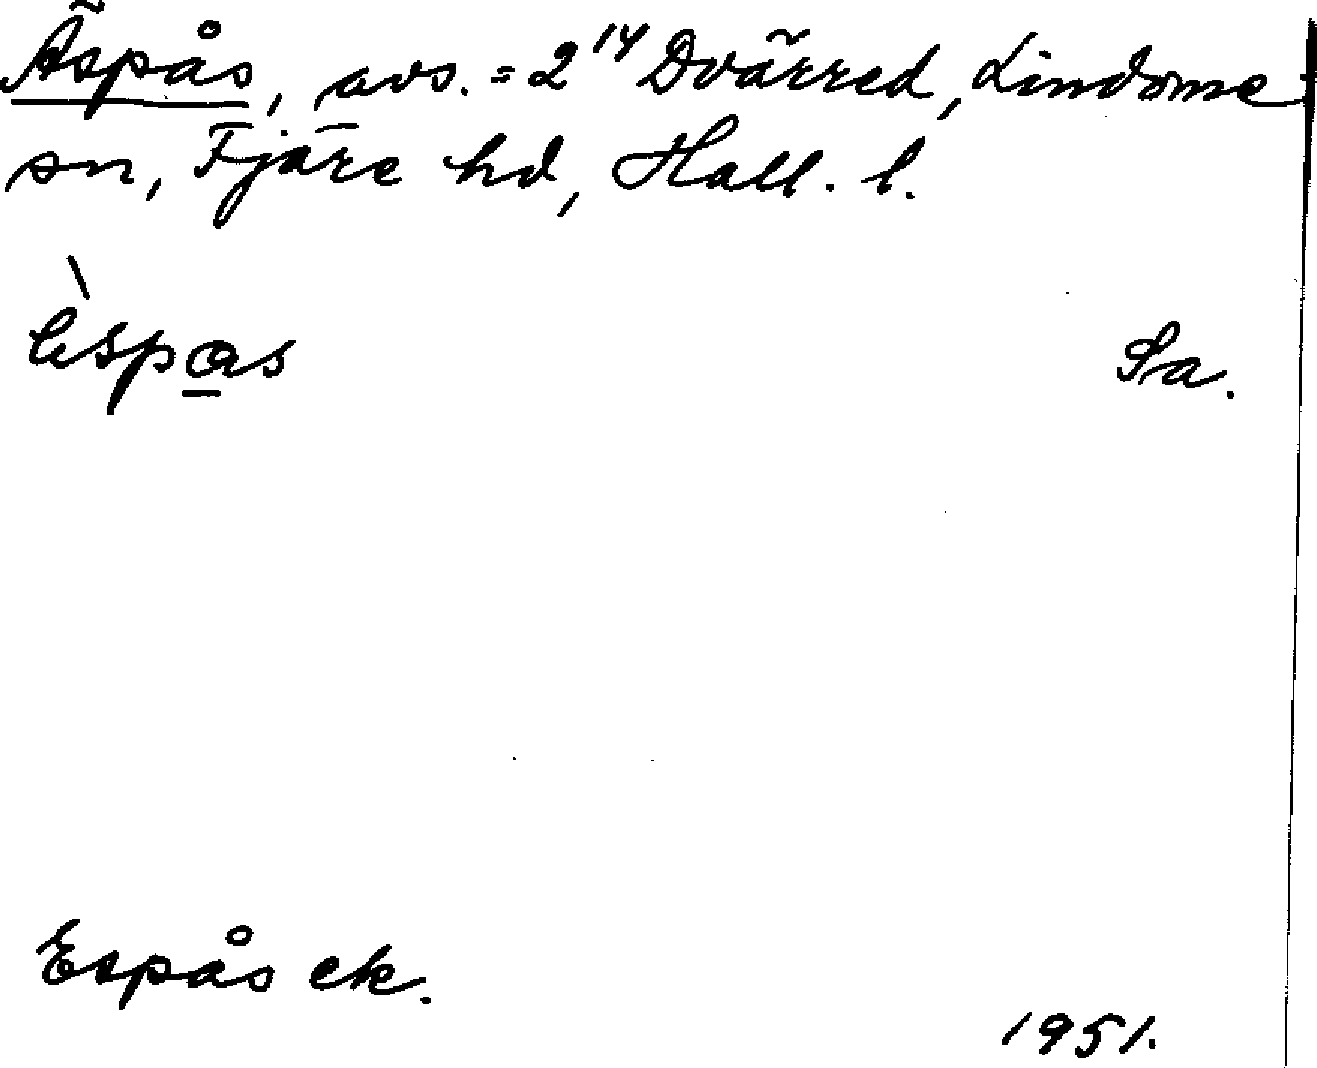 Äspås, avs. = 2¹⁴ Dvärred, Lindome
sn, Fjäre hd, Hall. l.
èspa̲s Sa.
Espås ek.
1951.